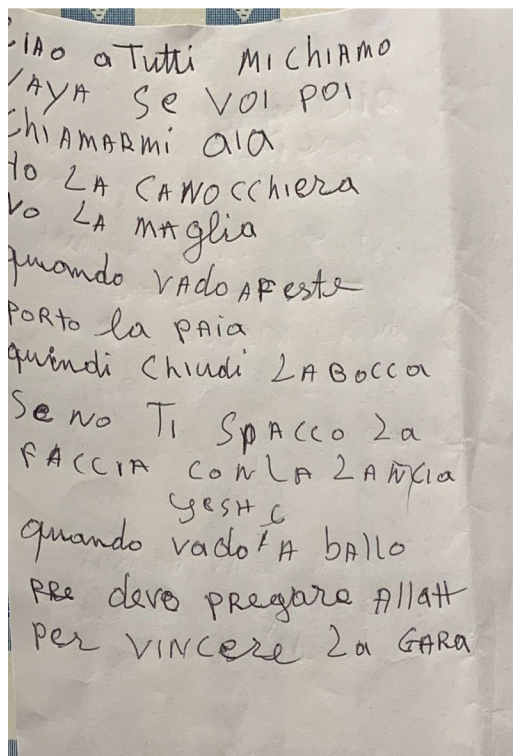 CIAO a Tutti MI ChIAMO
YAYA Se VOI POI
ChIAMARMi aIa
Ho LA CANOCChiera
Vo LA MAglia
quando VAdo A Feste
PORto la PAia
quindi Chiudi LA BOCCa
Se No TI SPACCO La
FACCIA CON LA LANCIa
quando vado A bAllo
PRe devo PRegare AllaH
Per VINCere La GARa